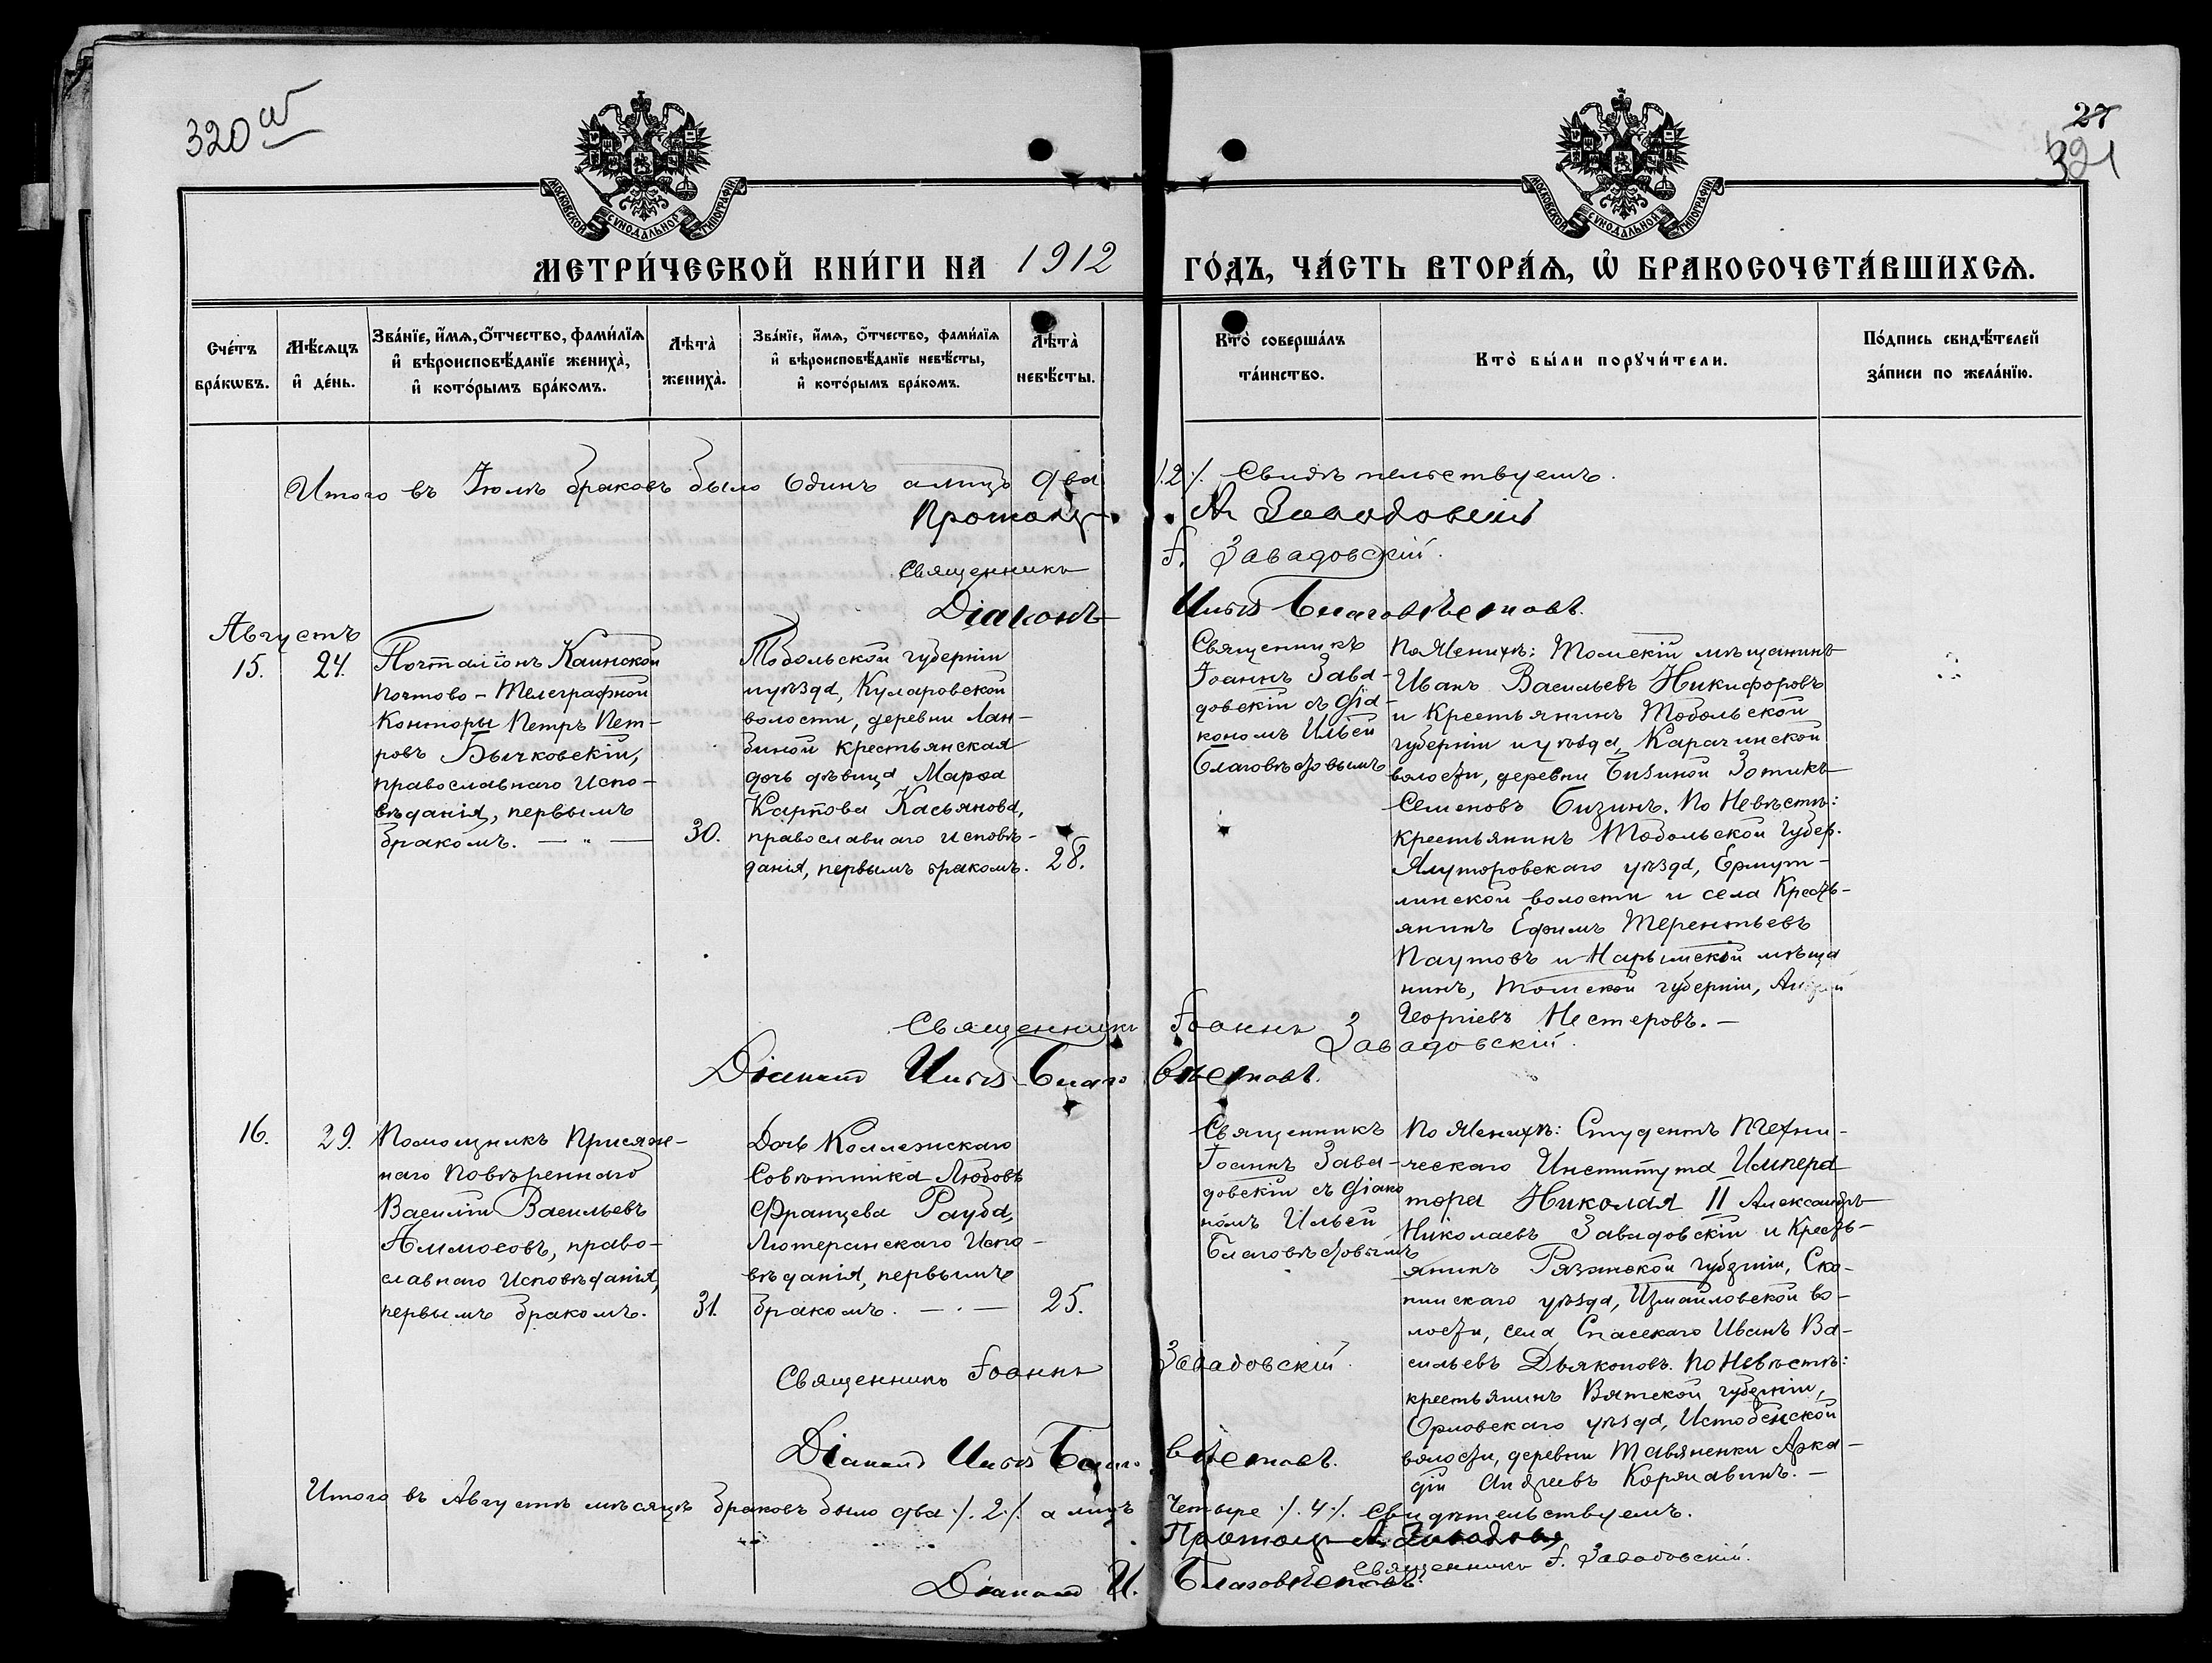 320 об
27
321
МОСКОВСКОЙ СѴНОДАЛЬНОЙ ТИПОГРАФІИ
МОСКОВСКОЙ СѴНОДАЛЬНОЙ ТИПОГРАФІИ
МЕТРИ́ЧЕСКОЙ КНИ́ГИ НА 1912 ГО́ДЪ, ЧА́СТЬ ВТОРА́Ѧ, Ѽ БРАКОСОЧЕТА́ВШИХСѦ.
Сче́тъ
бра́кѡвъ.
Мѣ́сѧцъ
и҆ де́нь.
Зва́нїе, и҆́мѧ, ѻ҆́тчество, фами́лїѧ
и҆ вѣроисповѣ́данїе жениха̀,
и҆ кото́рымъ бра́комъ.
Лѣ́та̀
жениха̀.
Зва́нїе, и҆́мѧ, ѻ҆́тчество, фами́лїѧ
и҆ вѣроисповѣ́данїе невѣ́сты,
и҆ кото́рымъ бра́комъ.
Лѣ́та̀
невѣ́сты.
Кто̀ соверша́лъ
та́инство.
Кто̀ бы́ли порꙋчи́тели.
По́дпись свидѣ́телей
за́писи по жела́нїю.
Итого въ Іюлѣ браковъ было одинъ а лицъ два /.2./. Свидѣтельствуемъ.
Протоіер. Ал. Заводовскій
Священникъ І. Завадовскій.
Діаконъ Илія Благовѣстовъ.
Августъ
15.
24.
Почталіонъ Каинской
Почтово-Телеграфной
Конторы Петръ Пет-
ровъ Бычковскій,
православнаго испо-
вѣданія, первымъ
бракомъ. — „ —
30.
Тобольской губерніи
и уѣзда, Куларовской
волости, деревни Лан-
биной крестьянская
дочь дѣвица Марѳа
Карпова Касьянова,
православнаго исповѣ-
данія, первымъ бракомъ.
28.
Священникъ
Іоаннъ Зава-
довскій съ діа-
кономъ Ильей
Благовѣстовымъ
По Женихѣ: Томскій мѣщанинъ
Иванъ Васильевъ Никифоровъ
и Крестьянинъ Тобольской
губерніи и уѣзда, Карачинской
волости, деревни Бизиной Зотикъ
Семеновъ Бизинъ. По Невѣстѣ:
крестьянинъ Тобольской губер.
Ялуторовскаго уѣзда, Ермут-
линской волости и села Кресть-
янинъ Ефимъ Терентьевъ
Паутовъ и Нарымской мѣща
нинъ, Томской губерніи,
Георгіевъ Нестеровъ. —
Священникъ Іоаннъ Завадовскій.
Діаконъ Илія Благовѣстовъ.
16.
29.
Помощникъ Присяж-
наго Повѣреннаго
Василій Васильевъ
Аммосовъ, право-
славнаго исповѣданія,
первымъ бракомъ.
31.
Дочь Коллежскаго
Совѣтника Любовь
Францева Рауба,
Лютеранскаго Испо-
вѣданія, первымъ
бракомъ. — . —
25.
Священникъ
Іоаннъ Зава-
довскій съ діако
номъ Ильей
Благовѣстовымъ
По Женихѣ: Студентъ Техни-
ческаго Института Импера
тора Николая II Александръ
Николаевъ Завадовскій и Кресть-
янинъ Рязанской губерніи, Ско-
пинскаго уѣзда, Измайловской во-
лости, села Спасскаго Иванъ Ва-
сильевъ Дьяконовъ. По Невѣстѣ:
крестьянинъ Вятской губерніи,
Орловскаго уѣзда, Истобенской
волости, деревни Тавяненки Арка-
дій Андреевъ Корявинъ. —
Священникъ Іоаннъ Завадовскій.
Діаконъ Илія Благовѣстовъ.
Итого въ Августѣ мѣсяцѣ браковъ было два /.2./. а лицъ четыре /.4./. Свидѣтельствуемъ.
Протоіер. А. Заводовскій
Священникъ І. Завадовскій.
Діаконъ И. Благовѣстовъ.